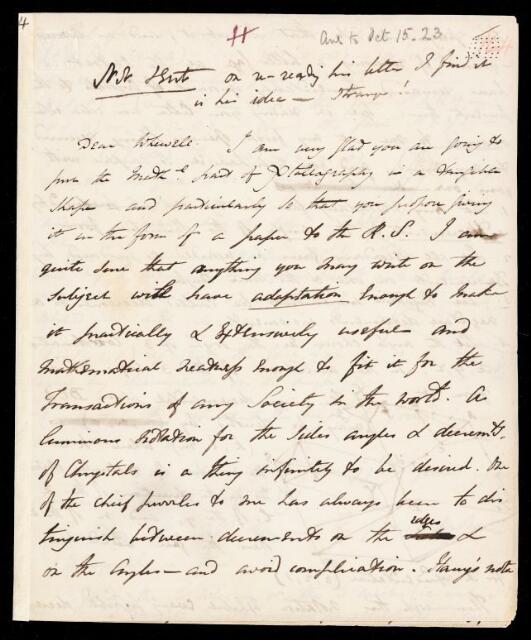 4
Ans to Oct 15. 23
Not Sent on re-reading his letter I find it
is his idea — Strange!
Dear Whewell. I am very glad you are going to
give the Math.l part of Xtallography in a tangible
shape and particularly so that you propose giving
it in the form of a paper to the R. S. I am
quite sure that anything you may write on the
subject will have adaptation enough to make
it practically & extensively useful and
mathematical neatness enough to fit it for the
Transactions of any Society in the world. A
luminous notation for the sides angles & decrem.ts
of Chrystals is a thing infinitely to be desired. One
of the chief puzzles to me has always been to dis
tinguish between decrements on the edges &
on the angles — and avoid complication. Hauy's note